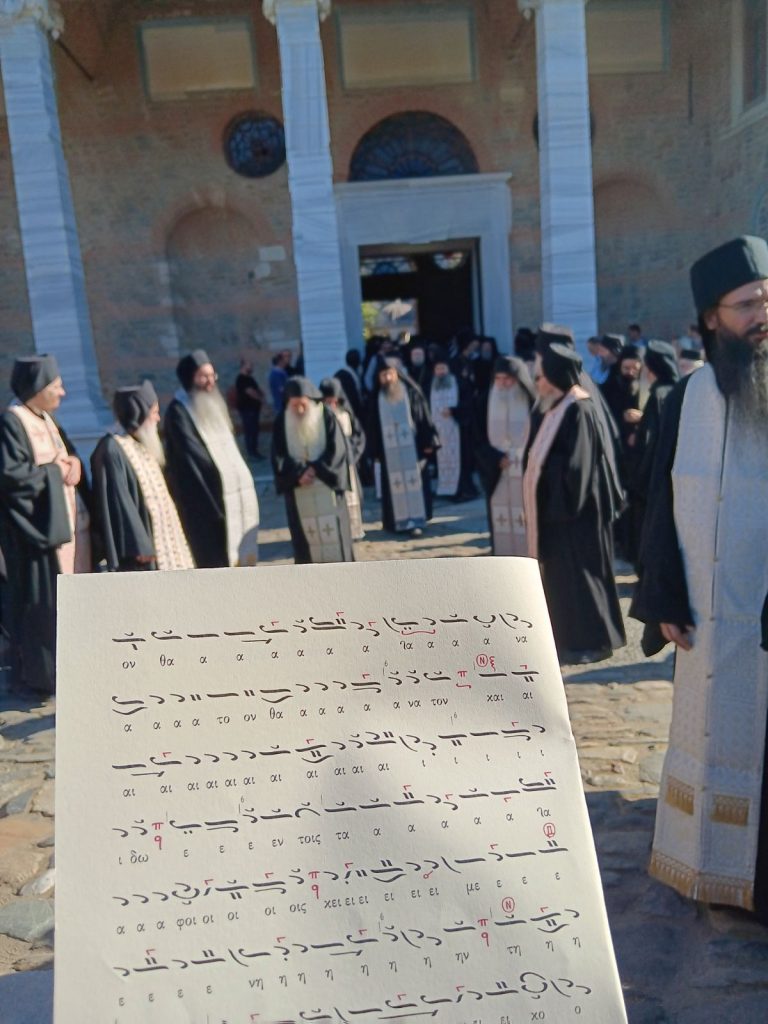 ον θα α α α α α α λα α α α να
α α α α το ον θα α α α α α να τον και αι
αι αι αι αι αι αι αι αι αι αι ι ι ι ι ι
ι δω ε ε ε εν τοις τα α α α α α λα
α α α φοι οι οι οι οις κει ει ει ει ει ει με ε ε ε
ε ε ε ε νη η η η η η η ην τη η η
χο ο